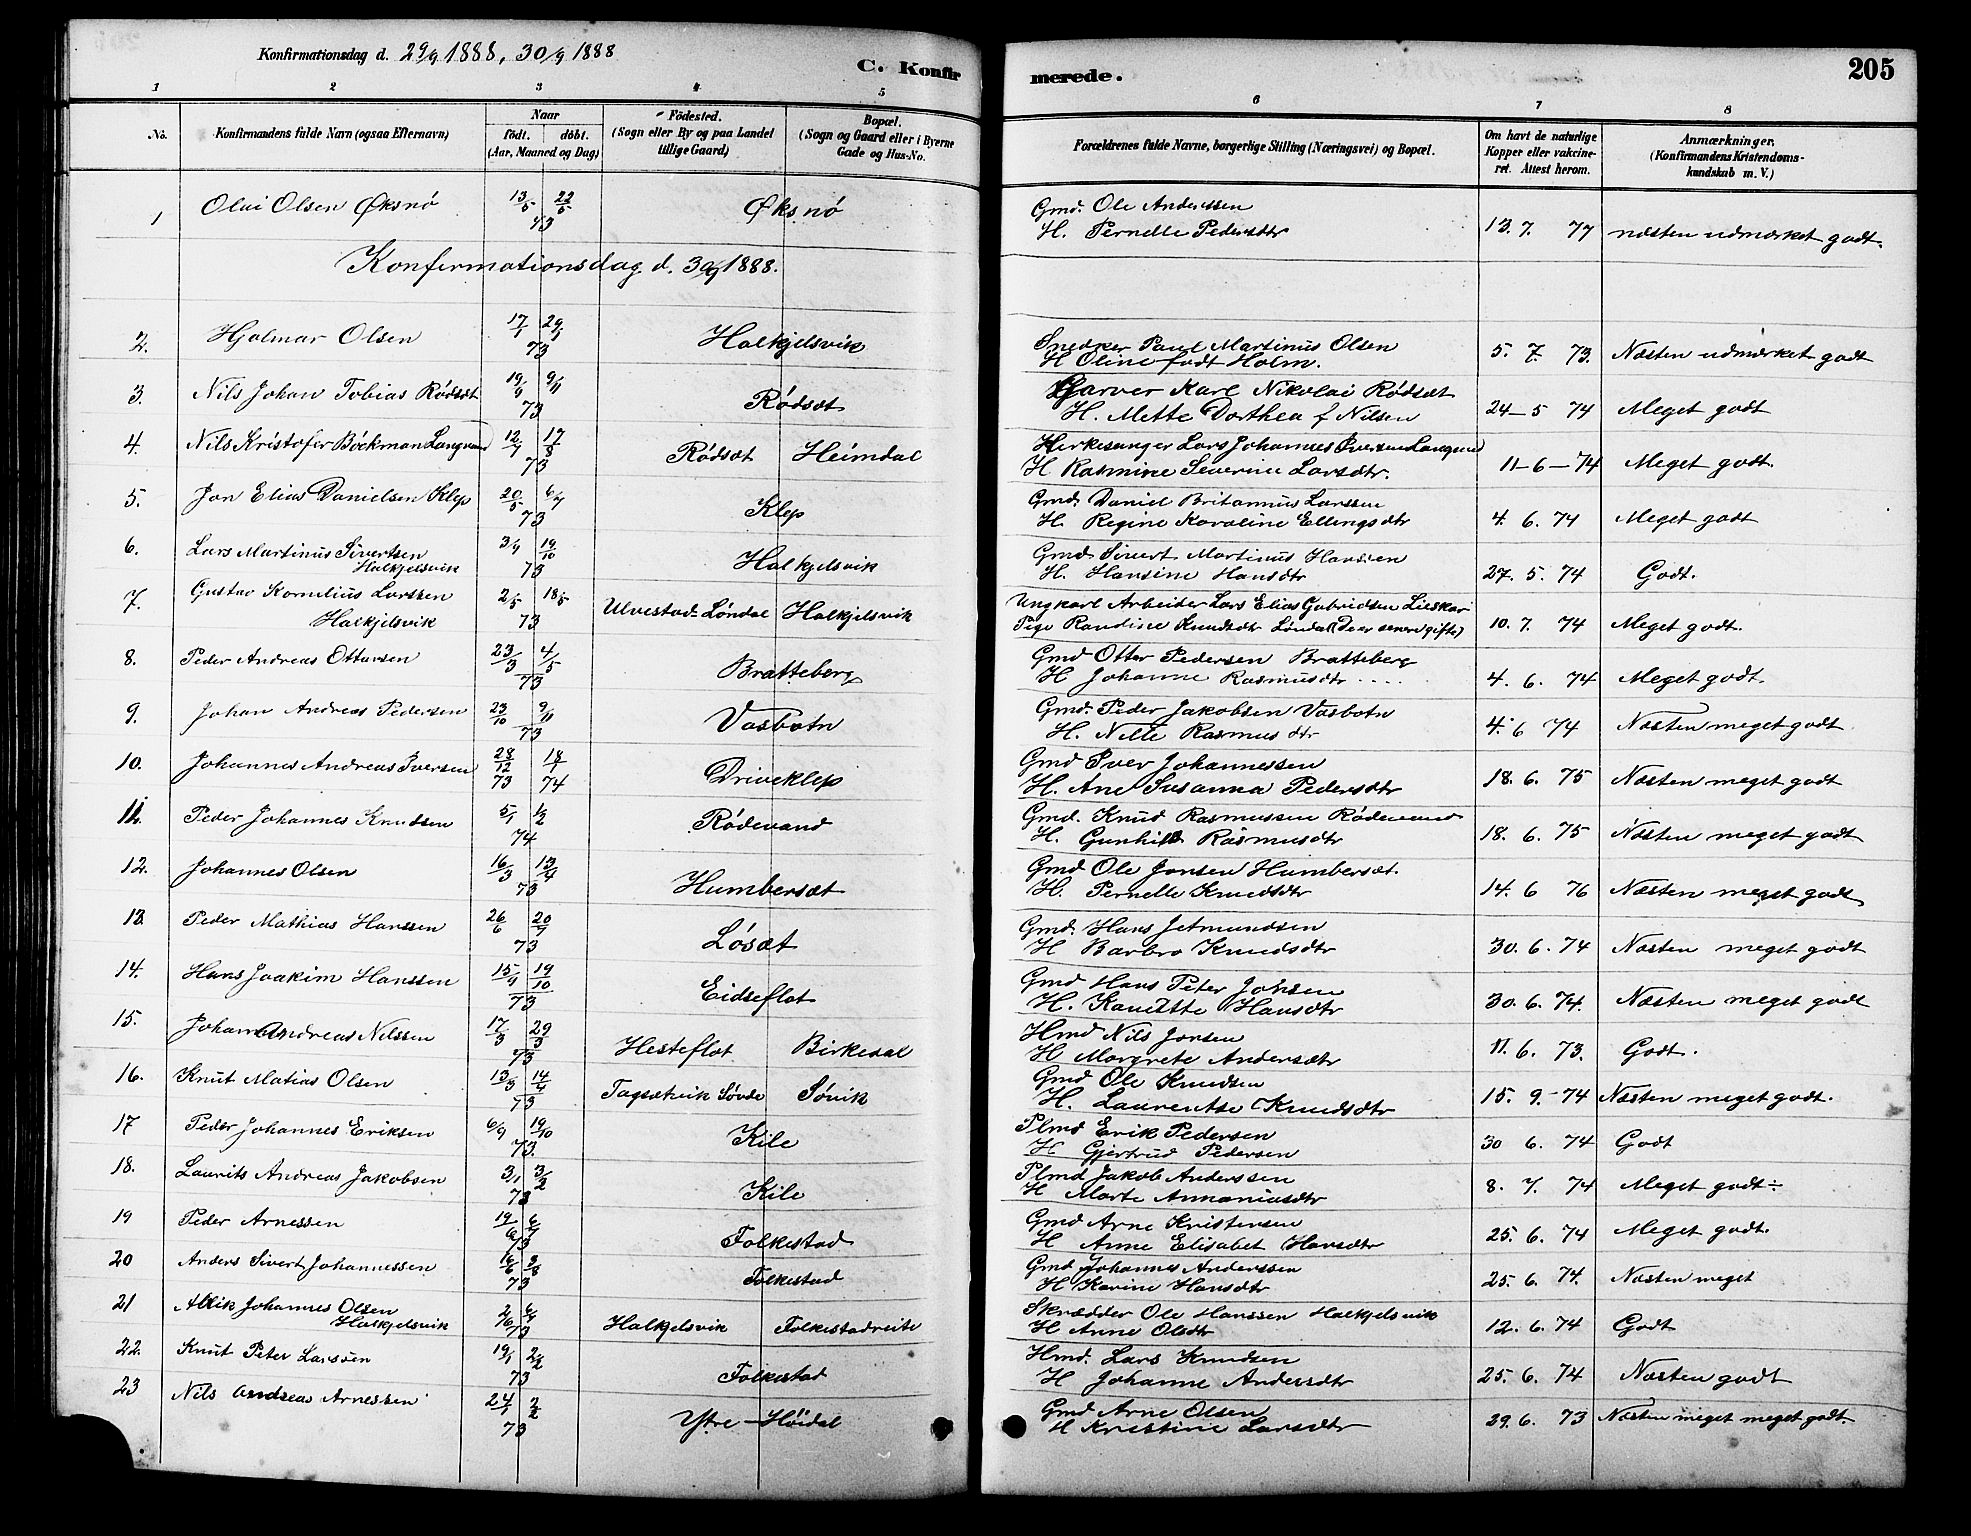 Konfirmationsdag d. 29/9 1888, 30/9 1888
C. Konfir
merede.
205
1 2 3 4 5 6 7 8
No.
Konfirmandens fulde Navn (ogsaa Efternavn)
Naar
födt. döbt.
(Aar, Maaned og Dag)
Födested.
(Sogn eller By og paa Landet
tillige Gaard)
Bopæl.
(Sogn og Gaard eller i Byerne
Gade og Hus-No.
Forældrenes fulde Navne, borgerlige Stilling (Næringsvei) og Bopæl.
Om havt de naturlige
Kopper eller vakcine-
ret. Attest herom.
Anmærkninger.
(Konfirmandens Kristendoms-
kundskab m. V.)
1 Olai Olsen Øksnö 13/5 22/5 73 Øksnö Gmd. Ole Anderssen
H. Pernelle Pedersdtr 13. 7. 77 næsten udmærket godt.
Konfermationsdag d. 30/9 1888.
2. Hjalmar Olsen 17/1 29/1 73 Halkjelsvik Snedker Paul Martinus Olsen
H Oline født Holm. 5. 7. 73. Næsten udmærket godt
3. Nils Johan Tobias Rødsæt 19/9 9/11 73 Rødsæt Garver Karl Nikolai Rødsæt
H. Mette Dorthea f Nilsen 24-5 74 Meget godt
4. Nils Kristofer Böckman Langnæs 12/7 17/8 73 Rødsæt Heimdal Kirkesanger Lars Johannes Iversen Langnæs
H Rasmine Severine Larsdtr. 11-6-74 Meget godt.
5. Jon Elias Danielsen Klep 20/5 6/7 73 Klep Gmd. Daniel Britannus Larssen
H. Regine Karoline Ellingsdtr 4. 6. 74 Meget godt
6. Lars Martinus Sivertsen
Halkjelsvik 3/9 19/10 73 Halkjelsvik Gmd Sivert Martinus Hanssen
H. Hansine Hansdtr 27. 5. 74 Godt.
7. Gustav Kornelius Larssen
Halkjelsvik 2/5 18/5 73 Ulvestad-Løndal Halkjelsvik Ungkarl Arbeider Lars Elias Gabrielsen Lieskar
Pige Randine Knudsdtr Løndal (De er senere gifte) 10. 7. 74 Meget godt.
8. Peder Andreas Ottarsen 23/3 4/5 73 Bratteberg Gmd Otter Pedersen Bratteberg
H Johanne Rasmusdtr .... 4. 6. 74 Meget godt.
9. Johan Andreas Pedersen 23/10 9/11 73 Vasbotn Gmd. Peder Jakobsen Vasbotn
H. Nille Rasmusdtr 4. 6 74 Næsten meget godt.
10. Johannes Andreas Iversen 28/12 73 18/1 74 Driveklep Gmd Iver Johannessen
H. Ane Susanna Pedersdtr 18. 6. 75 Næsten meget godt
11. Peder Johannes Knudsen 5/1 1/2 74 Rødevand Gmd. Knud Rasmussen Rødevand
H. Gunhild Rasmusdtr 18. 6. 75 Næsten meget godt
12. Johannes Olsen 16/3 13/4 73 Humbersæt Gmd Ole Jonsen Humbersæt.
H. Pernelle Knudsdtr 14. 6 76 Næsten meget godt
13. Peder Mathias Hanssen 26/6 20/7 73 Løsæt Gmd. Hans Jetmundsen
H Barbro Knudsdtr 30. 6. 74 Næsten meget godt
14. Hans Joakim Hanssen 15/9 19/10 73 Eidseflot Gmd Hans Peter Johsen
H. Kanutte Hansdtr 30. 6. 74. Næsten meget godt
15. Johannes Andreas Nilssen 17/3 29/3 73 Hesteflot Birkedal Hmd Nils Jonsen
H Margrete Andersdtr 11. 6. 73. Godt.
16. Knut Matias Olsen 13/3 14/4 73 Tagsætvik Søvde Søvik Gmd Ole Knudsen
H. Laurentse Knudsdtr 15. 9. - 74 Næsten meget godt.
17 Peder Johannes Eriksen 6/9 19/10 73. Kile Plmd Erik Pedersen
H Gjertrud Pedersen 30 6. 74 Godt
18. Laurits Andreas Jakobsen 3/1 3/2 73 Kile Plmd Jakob Anderssen
H Marte Annaniasdtr 8. 7. 74 Meget godt ÷
19 Peder Arnessen 19/6 6/7 73 Folkestad Gmd Arne Kristensen
H Anne Elisabet Hansdtr 25. 6. 74 Meget godt.
20 Anders Sivert Johannessen 16/6 3/8 73 Folkestad Gmd Johannes Anderssen
H Karine Hansdtr 25. 6. 74. Næsten meget
21 Alrik Johannes Olsen
Halkjelsvik 2/6 6/7 73 Halkjelsvik Folkestadreite Skrædder Ole Hanssen Halkjelsvik
H Anne Olsdtr 12. 6. 74 Godt
22. Knut Peter Larssen 19/1 2/2 73 Folkestad Hmd. Lars Knudsen
H Johanne Andersdtr 25. 6. 74 Næsten godt
23 Nils Andreas Arnessen 24/1 2/2 73 Ytre-Høidal Gmd Arne Olsen
H Kristine Larsdtr 29. 6. 73 Næsten meget meget godt.